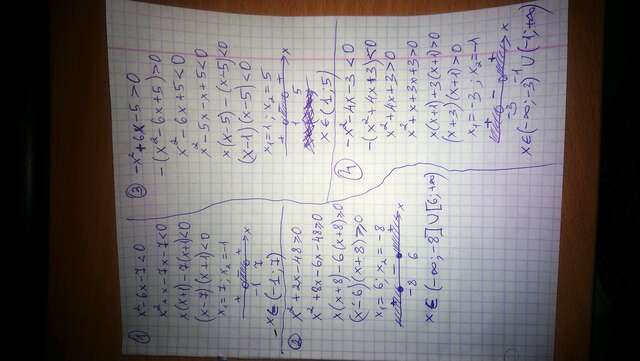 ① x²-6x-7<0
x²+x-7x-7<0
x(x+1)-7(x+1)<0
(x-7)(x+1)<0
x₁=7, x₂=-1
+ - + x
-1 7
x∈(-1;7)
② x²+2x-48≥0
x²+8x-6x-48≥0
x(x+8)-6(x+8)≥0
(x-6)(x+8)≥0
x₁=6; x₂=-8
+ - + x
-8 6
x∈(-∞;-8]∪[6;+∞)
③ -x²+6x-5>0
-(x²-6x+5)>0
x²-6x+5<0
x²-5x-x+5<0
x(x-5)-(x-5)<0
(x-1)(x-5)<0
x₁=1; x₂=5
+ - + x
1 5
x∈(1;5)
④ -x²-4x-3<0
-(x²+4x+3)<0
x²+4x+3>0
x²+x+3x+3>0
x(x+1)+3(x+1)>0
(x+3)(x+1)>0
x₁=-3, x₂=-1
+ - + x
-3 -1
x∈(-∞;-3)∪(-1;+∞)